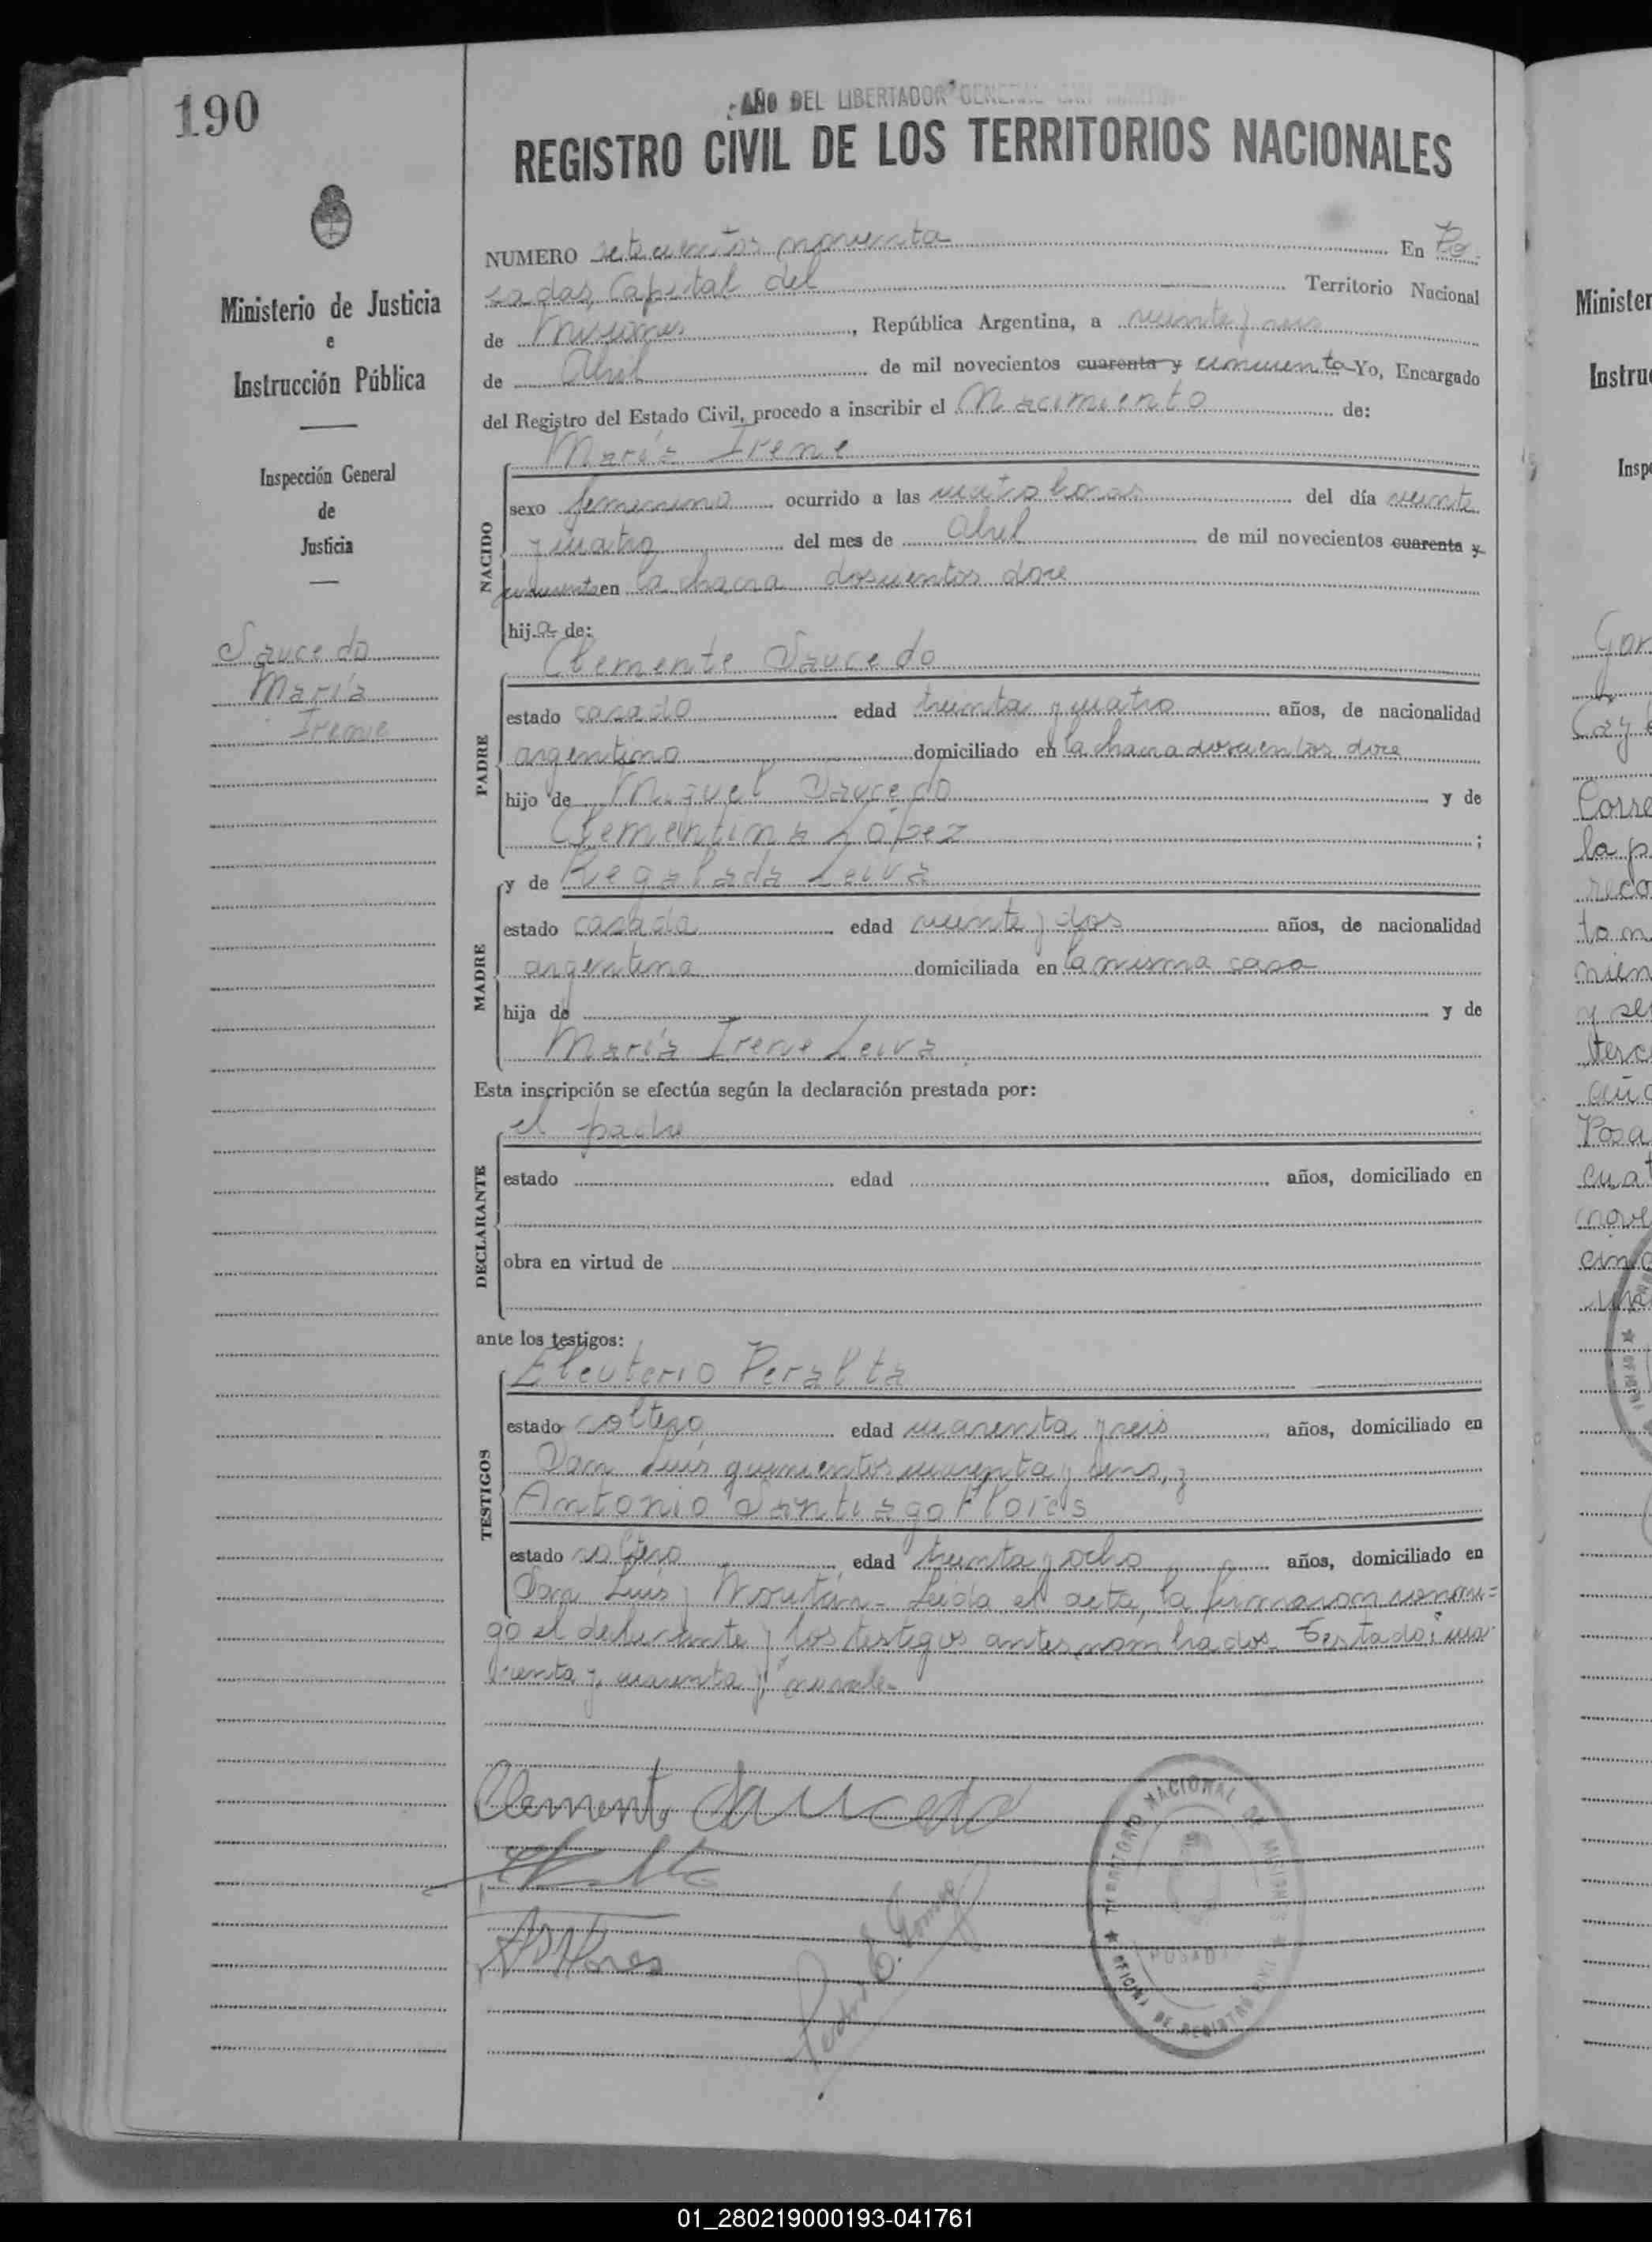 190
AÑO DEL LIBERTADOR GENERAL SAN MARTIN
REGISTRO CIVIL DE LOS TERRITORIOS NACIONALES
Ministerio de Justicia
e
Instrucción Pública
Inspección General
de
Justicia
Saucedo
María
Irene
NUMERO setecientos noventa En Po
sadas, Capital del Territorio Nacional
de Misiones, República Argentina, a veinte y seis
de Abril de mil novecientos cuarenta y cincuenta Yo, Encargado
del Registro del Estado Civil, procedo a inscribir el Nacimiento de:
María Irene
NACIDO
sexo femenino ocurrido a las cuatro horas del día veinte
y cuatro del mes de Abril de mil novecientos cuarenta y
cincuenta en la chacra doscientos doce
hija de:
Clemente Saucedo
PADRE
estado casado edad treinta y cuatro años, de nacionalidad
argentino domiciliado en la chacra doscientos doce
hijo de Miguel Saucedo y de
Clementina López ;
y de Regalada Leiva
MADRE
estado casada edad veinte y dos años, de nacionalidad
argentina domiciliada en la misma casa
hija de y de
María Irene Leiva
Esta inscripción se efectúa según la declaración prestada por:
el padre
DECLARANTE
estado edad años, domiciliado en
obra en virtud de
ante los testigos:
Eleuterio Peralta
TESTIGOS
estado soltero edad cuarenta y seis años, domiciliado en
San Luis quinientos cuarenta y uno, y
Antonio Santiago Flores
estado soltero edad treinta y ocho años, domiciliado en
San Luis y Moután - Leída el acta, la firmaron conmi=
go el declarante y los testigos antes nombrados. Testado: cua
renta y, cuarenta y, no vale-
Clemente Saucedo
A S Flores
TERRITORIO NACIONAL DE MISIONES
POSADAS
OFICINA DE REGISTRO CIVIL
Minister
Instru
Insp
01_280219000193-041761